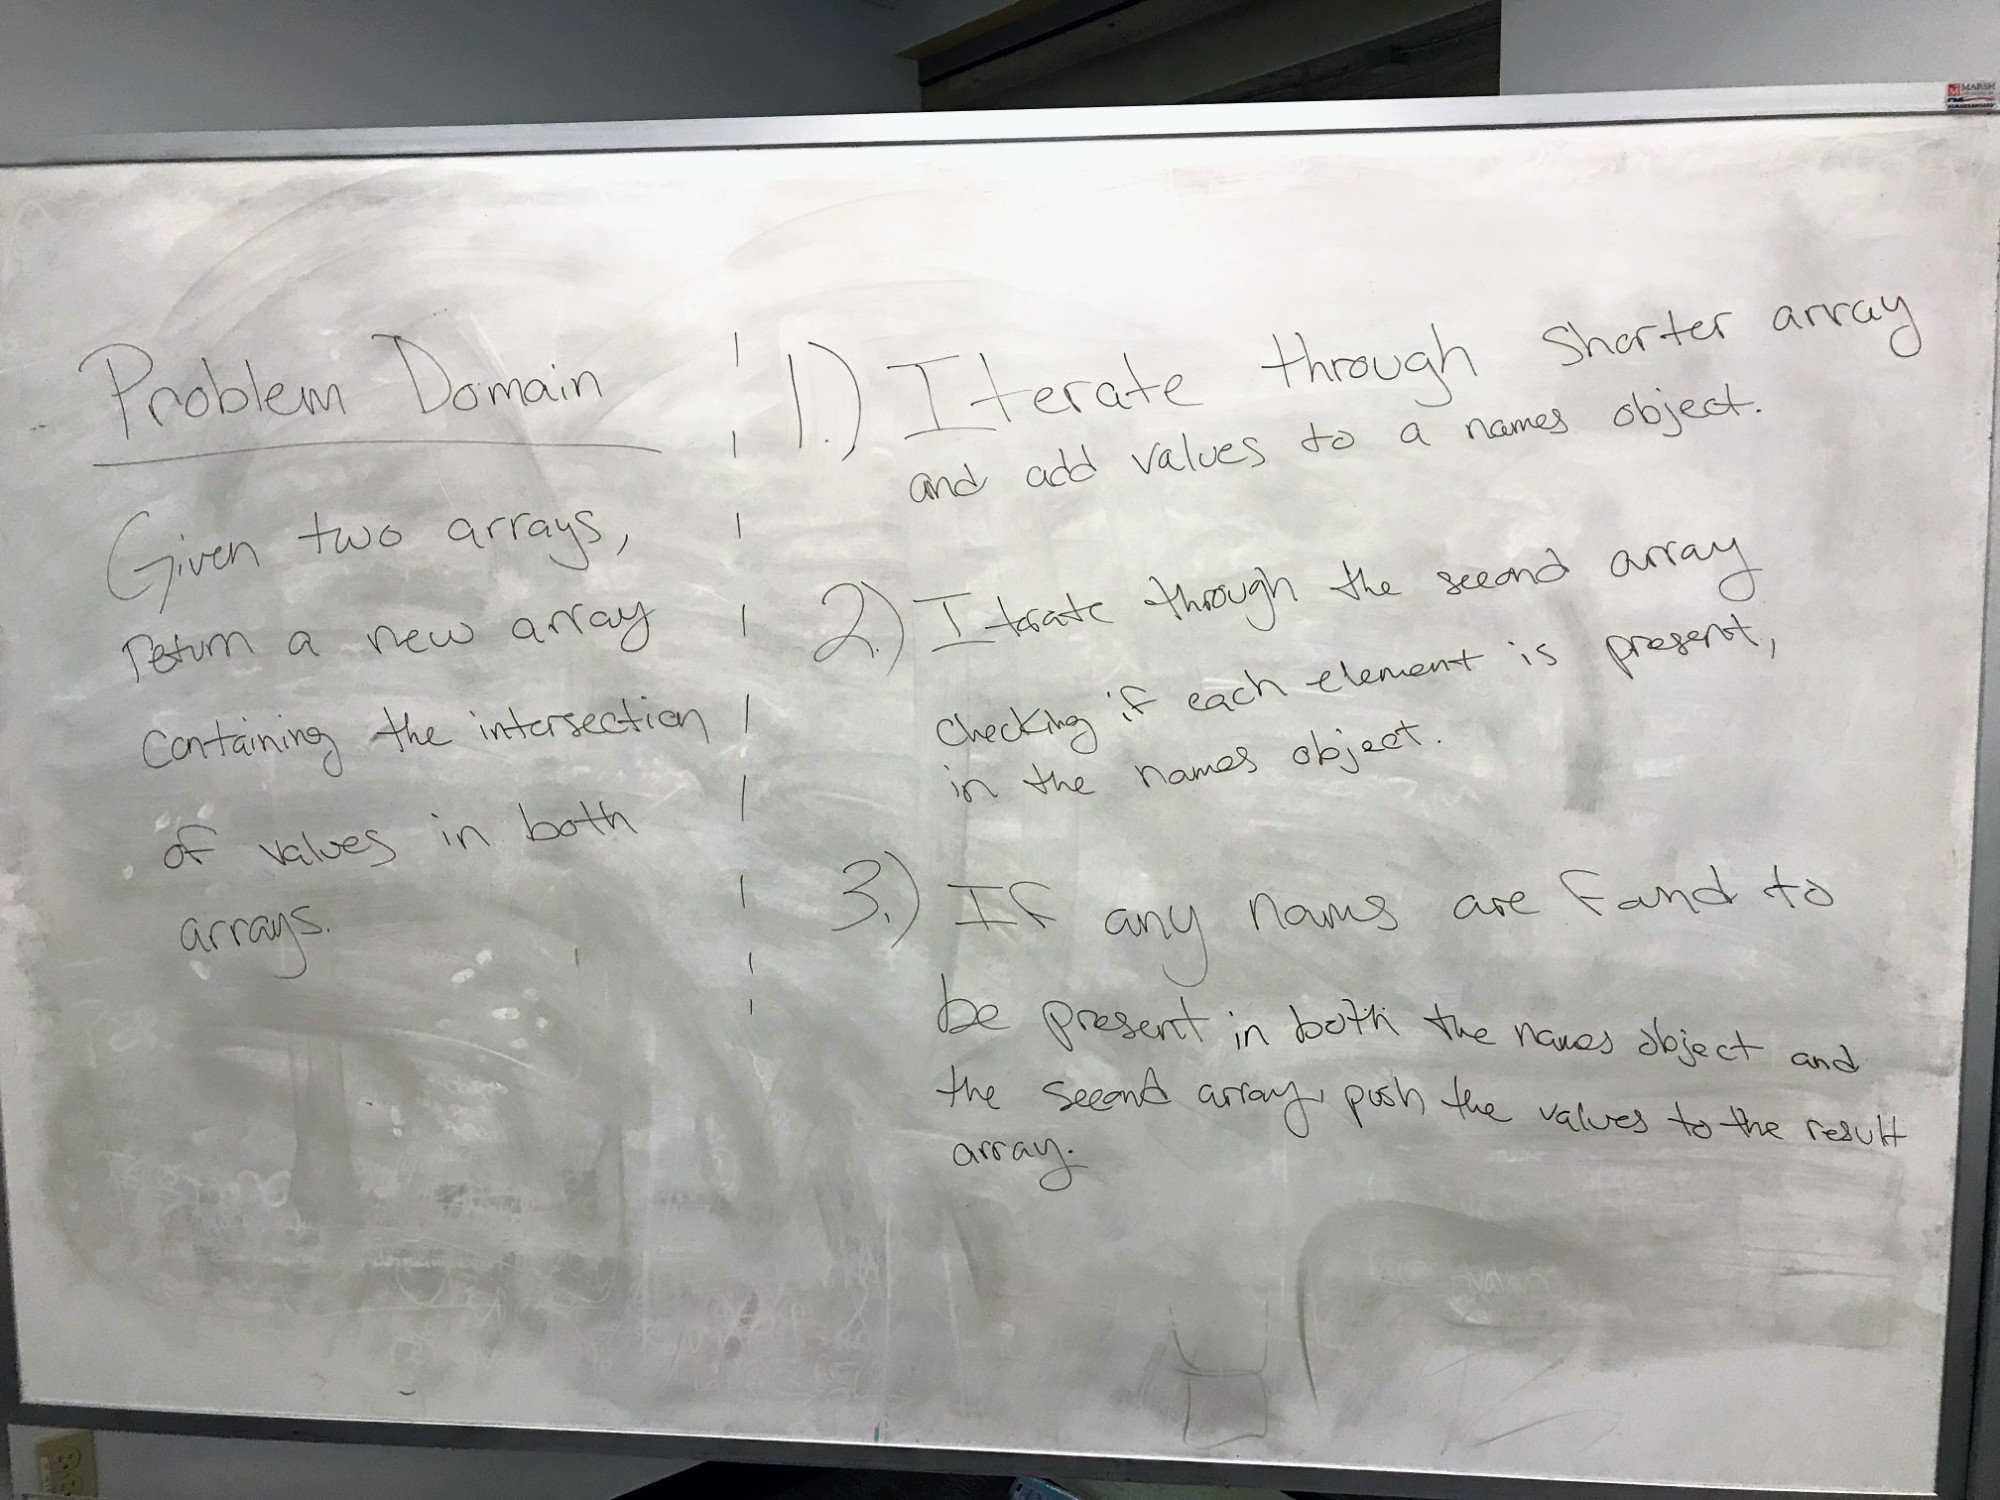 Problem Domain
Given two arrays,
return a new array
containing the intersection
of values in both
arrays.
1.) Iterate through shorter array
and add values to a names object.
2.) Iterate through the second array
checking if each element is present,
in the names object.
3.) If any names are found to
be present in both the names object and
the second array, push the values to the result
array.
MARSH